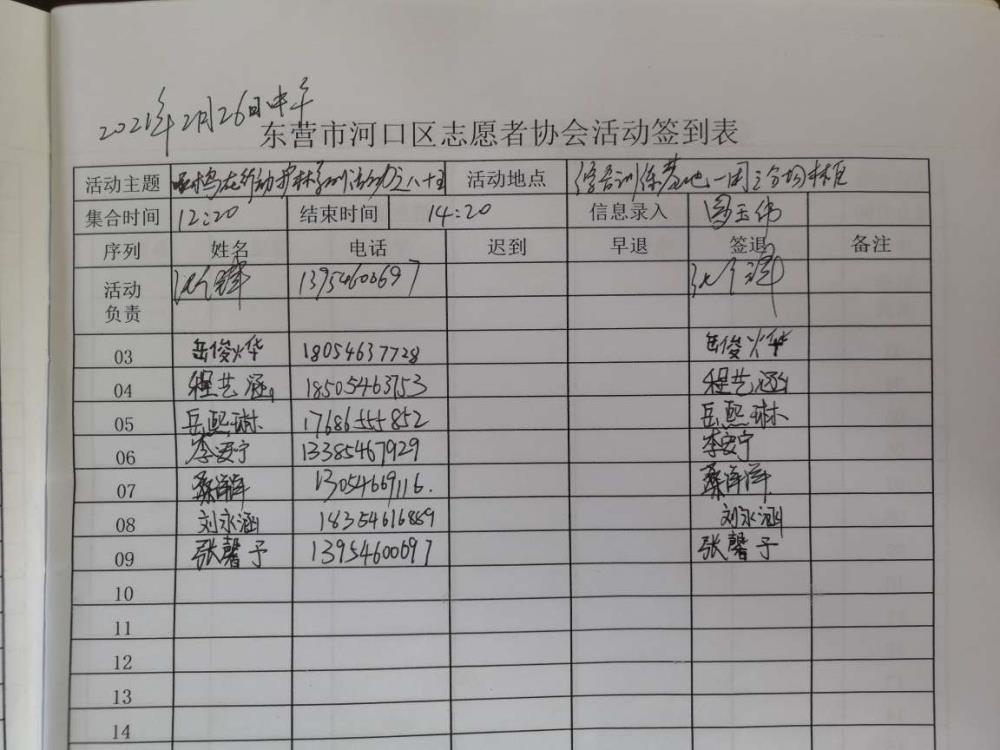 2021年2月26日中午
东营市河口区志愿者协会活动签到表
活动主题 在行动护林 活动之八十五 活动地点 训练基地一周
集合时间 12:20 结束时间 14:20 信息录入 玉伟
序列 姓名 电话 迟到 早退 签退 备注
活动
负责 13954600697
03 岳俊烨 18054637728 岳俊烨
04 程艺涵 18505463753 程艺涵
05 岳熙琳 17686555852 岳熙琳
06 李安宁 13385467929 李安宁
07 桑洋洋 13054669116. 桑洋洋
08 刘永涵 18354616889 刘永涵
09 张馨予 13954600697 张馨予
10
11
12
13
14